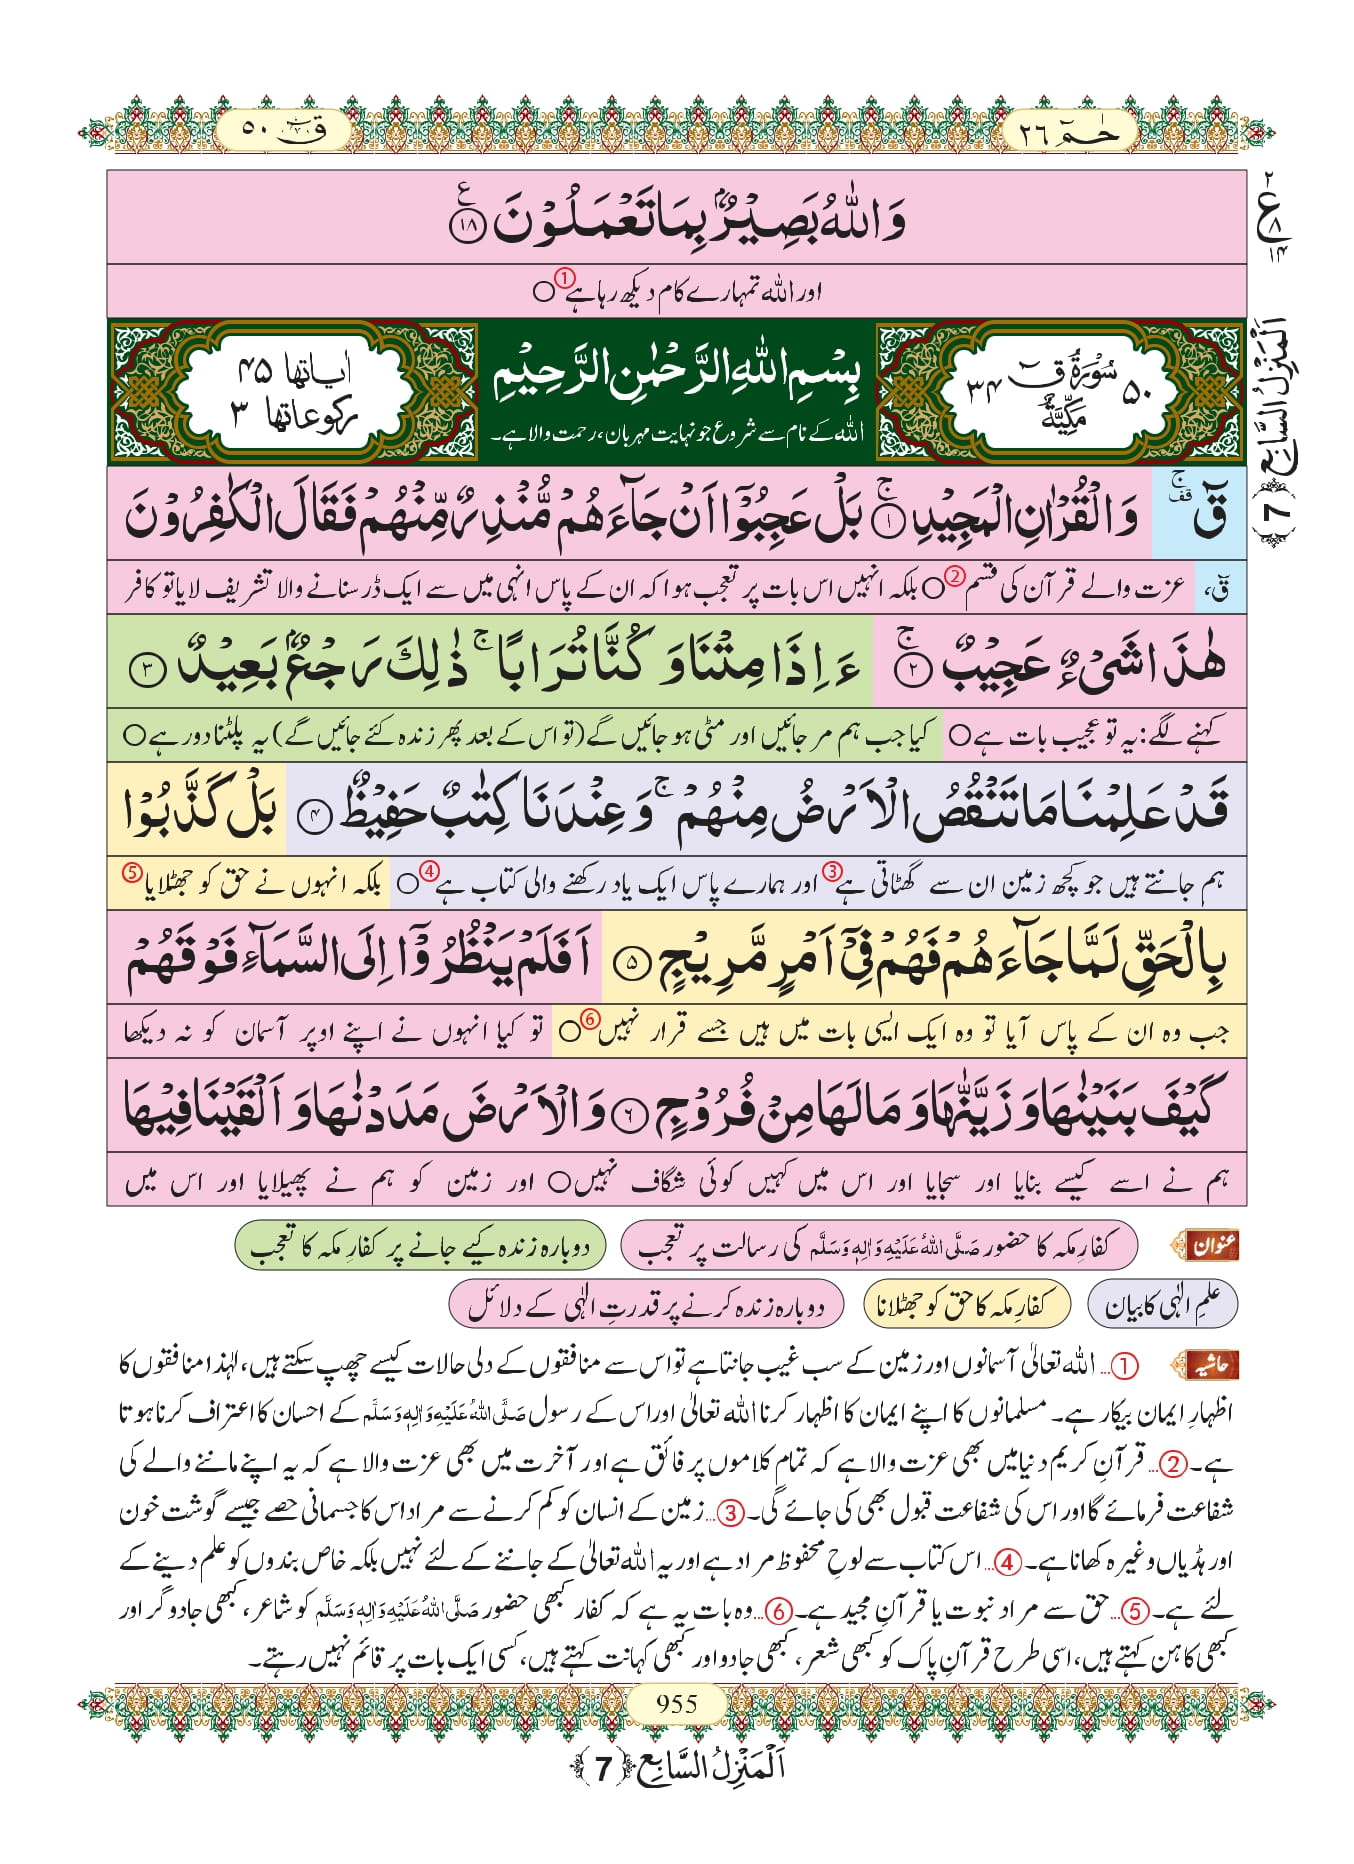 حٰمٓ ٢٦
قٓ ٥٠
وَاللّٰهُ بَصِیْرٌۢ بِمَا تَعْمَلُوْنَ ﴿١٨﴾ ع
٢
ع
٨
١٤
اور اللہ تمہارے کام دیکھ رہا ہے ① ○
اَلْمَنْزِلُ السَّابِع ﴿7﴾
٥٠ سُوْرَةُ قٓ مَكِّیَّةٌ ٣٤
بِسْمِ اللّٰهِ الرَّحْمٰنِ الرَّحِیْمِ
اللہ کے نام سے شروع جو نہایت مہربان، رحمت والا ہے۔
اٰیاتها ٤٥
رکوعاتها ٣
قٓ ۚ قف وَالْقُرْاٰنِ الْمَجِیْدِ ﴿١﴾ۚ بَلْ عَجِبُوْۤا اَنْ جَآءَهُمْ مُّنْذِرٌ مِّنْهُمْ فَقَالَ الْكٰفِرُوْنَ
قٓ، عزت والے قرآن کی قسم ② ○ بلکہ انہیں اس بات پر تعجب ہوا کہ ان کے پاس انہی میں سے ایک ڈر سنانے والا تشریف لایا تو کافر
هٰذَا شَیْءٌ عَجِیْبٌ ﴿٢﴾ۚ ءَاِذَا مِتْنَا وَ كُنَّا تُرَابًا ۚ ذٰلِكَ رَجْعٌۢ بَعِیْدٌ ﴿٣﴾
کہنے لگے: یہ تو عجیب بات ہے ○ کیا جب ہم مر جائیں اور مٹی ہو جائیں گے (تو اس کے بعد پھر زندہ کئے جائیں گے) یہ پلٹنا دور ہے ○
قَدْ عَلِمْنَا مَا تَنْقُصُ الْاَرْضُ مِنْهُمْ ۚ وَ عِنْدَنَا كِتٰبٌ حَفِیْظٌ ﴿٤﴾ بَلْ كَذَّبُوْا
ہم جانتے ہیں جو کچھ زمین ان سے گھٹاتی ہے ③ اور ہمارے پاس ایک یاد رکھنے والی کتاب ہے ④ ○ بلکہ انہوں نے حق کو جھٹلایا ⑤
بِالْحَقِّ لَمَّا جَآءَهُمْ فَهُمْ فِیْۤ اَمْرٍ مَّرِیْجٍ ﴿٥﴾ اَفَلَمْ یَنْظُرُوْۤا اِلَى السَّمَآءِ فَوْقَهُمْ
جب وہ ان کے پاس آیا تو وہ ایک ایسی بات میں ہیں جسے قرار نہیں ⑥ ○ تو کیا انہوں نے اپنے اوپر آسمان کو نہ دیکھا
كَیْفَ بَنَیْنٰهَا وَ زَیَّنّٰهَا وَ مَا لَهَا مِنْ فُرُوْجٍ ﴿٦﴾ وَ الْاَرْضَ مَدَدْنٰهَا وَ اَلْقَیْنَا فِیْهَا
ہم نے اسے کیسے بنایا اور سجایا اور اس میں کہیں کوئی شگاف نہیں ○ اور زمین کو ہم نے پھیلایا اور اس میں
عنوان کفارِ مکہ کا حضور صَلَّی اللّٰهُ عَلَیْهِ وَاٰلِهٖ وَسَلَّم کی رسالت پر تعجب دوبارہ زندہ کیے جانے پر کفارِ مکہ کا تعجب
علمِ الٰہی کا بیان کفارِ مکہ کا حق کو جھٹلانا دوبارہ زندہ کرنے پر قدرتِ الٰہی کے دلائل
حاشیہ ①... اللہ تعالیٰ آسمانوں اور زمین کے سب غیب جانتا ہے تو اس سے منافقوں کے دلی حالات کیسے چھپ سکتے ہیں، لہٰذا منافقوں کا
اظہارِ ایمان بیکار ہے۔ مسلمانوں کا اپنے ایمان کا اظہار کرنا اللہ تعالیٰ اور اس کے رسول صَلَّی اللّٰهُ عَلَیْهِ وَاٰلِهٖ وَسَلَّم کے احسان کا اعتراف کرنا ہوتا
ہے۔ ②... قرآنِ کریم دنیا میں بھی عزت والا ہے کہ تمام کلاموں پر فائق ہے اور آخرت میں بھی عزت والا ہے کہ یہ اپنے ماننے والے کی
شفاعت فرمائے گا اور اس کی شفاعت قبول بھی کی جائے گی۔ ③... زمین کے انسان کو کم کرنے سے مراد اس کا جسمانی حصے جیسے گوشت خون
اور ہڈیاں وغیرہ کھانا ہے۔ ④... اس کتاب سے لوحِ محفوظ مراد ہے اور یہ اللہ تعالیٰ کے جاننے کے لئے نہیں بلکہ خاص بندوں کو علم دینے کے
لئے ہے۔ ⑤... حق سے مراد نبوت یا قرآنِ مجید ہے۔ ⑥... وہ بات یہ ہے کہ کفار کبھی حضور صَلَّی اللّٰهُ عَلَیْهِ وَاٰلِهٖ وَسَلَّم کو شاعر، کبھی جادوگر اور
کبھی کاہن کہتے ہیں، اسی طرح قرآنِ پاک کو کبھی شعر، کبھی جادو اور کبھی کہانت کہتے ہیں، کسی ایک بات پر قائم نہیں رہتے۔
955
اَلْمَنْزِلُ السَّابِع ﴿7﴾